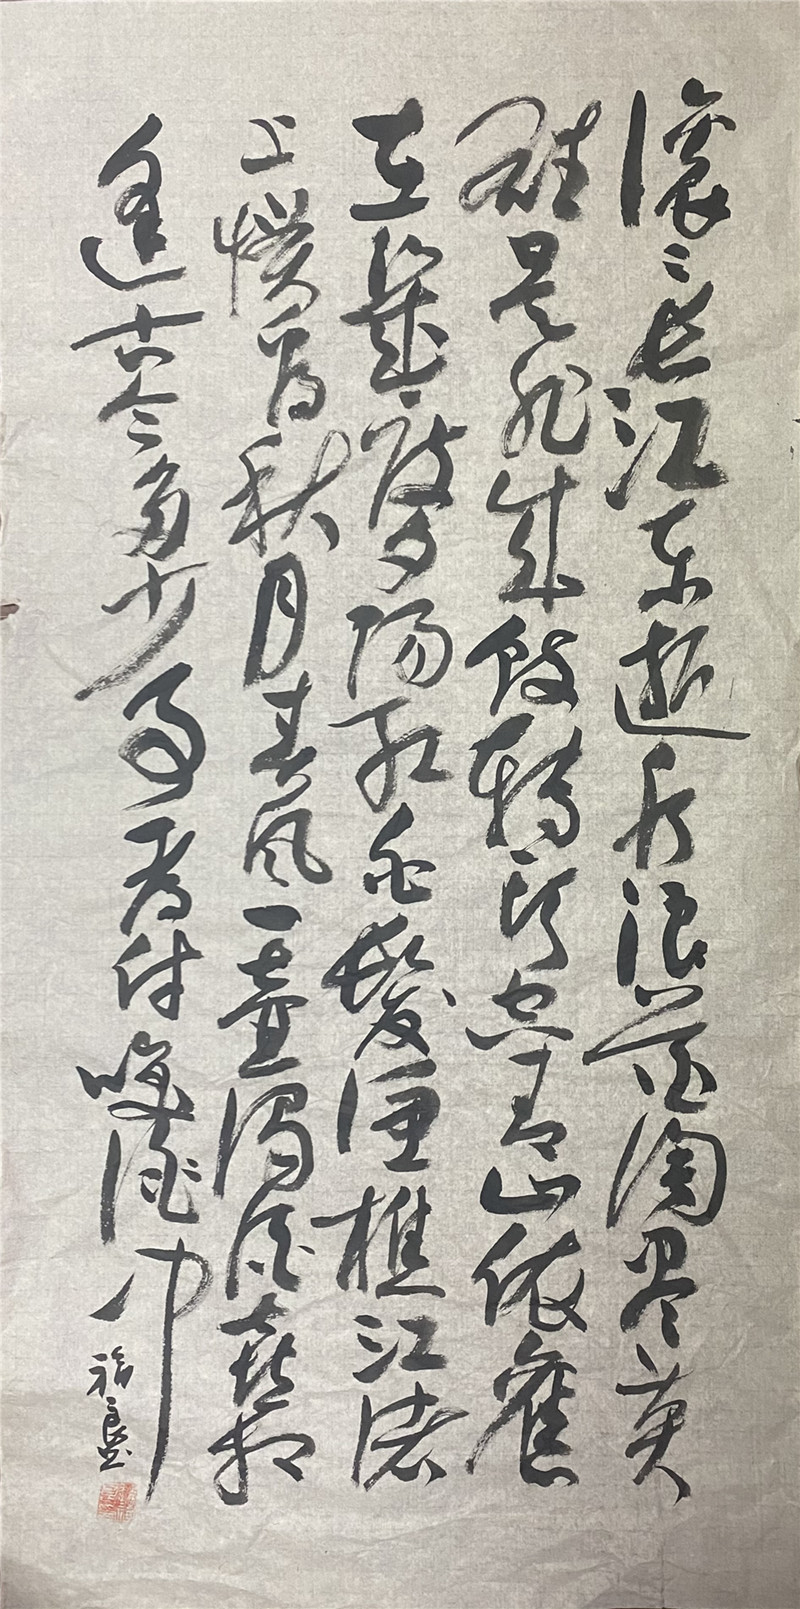 滾〻长江东逝水浪花淘尽英
雄是非成敗轉头空青山依舊
在幾度夕阳红白髮渔樵江渚
上惯看秋月春风一壶濁酒喜相
逢古今多少事都付咲谈中
福良书